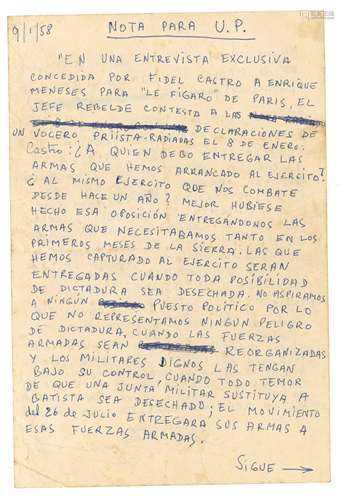 9/1/58
NOTA PARA U.P.
"EN UNA ENTREVISTA EXCLUSIVA
CONCEDIDA POR FIDEL CASTRO A ENRIQUE
MENESES PARA "LE FIGARO" DE PARIS, EL
JEFE REBELDE CONTESTA A LAS
DECLARACIONES DE
UN VOCERO PRIISTA RADIADAS EL 8 DE ENERO.
Castro: ¿A QUIEN DEBO ENTREGAR LAS
ARMAS QUE HEMOS ARRANCADO AL EJERCITO?
¿ AL MISMO EJERCITO QUE NOS COMBATE
DESDE HACE UN AÑO? MEJOR HUBIESE
HECHO ESA OPOSICIÓN ENTREGANDONOS LAS
ARMAS QUE NECESITABAMOS TANTO EN LOS
PRIMEROS MESES DE LA SIERRA. LAS QUE
HEMOS CAPTURADO AL EJERCITO SERAN
ENTREGADAS CUANDO TODA POSIBILIDAD
DE DICTADURA SEA DESECHADA. NO ASPIRAMOS
A NINGÚN PUESTO POLÍTICO POR LO
QUE NO REPRESENTAMOS NINGÚN PELIGRO
DE DICTADURA. CUANDO LAS FUERZAS
ARMADAS SEAN REORGANIZADAS
Y LOS MILITARES DIGNOS LAS TENGAN
BAJO SU CONTROL, CUANDO TODO TEMOR
DE QUE UNA JUNTA MILITAR SUSTITUYA A
BATISTA SEA DESECHADO; EL MOVIMIENTO
del 26 de JULIO ENTREGARA SUS ARMAS A
ESAS FUERZAS ARMADAS.
SIGUE →